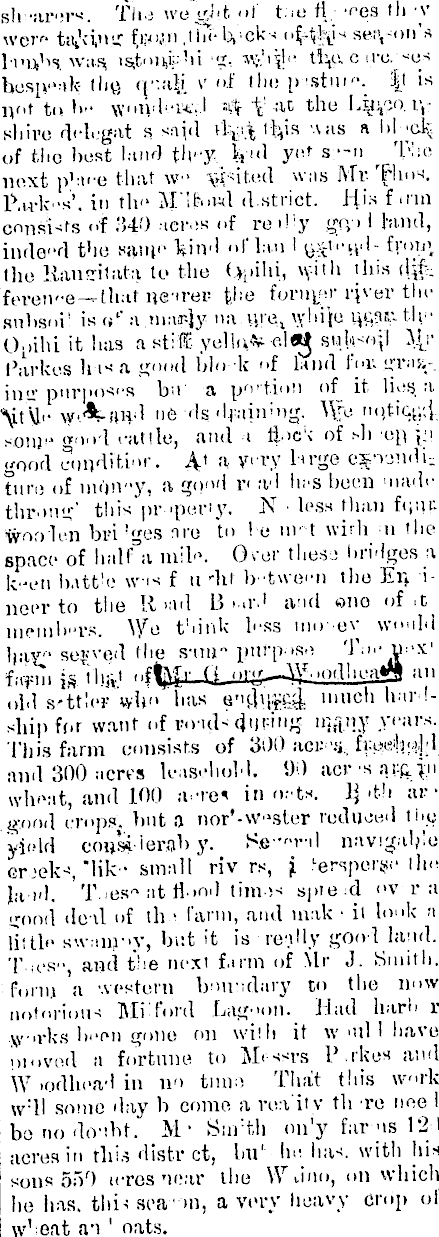 shearers. The weight of the fleeces they
were taking from the backs of this season's
lambs was astonishing, while the carcases
bespeak the quality of the pasture. It is
not to be wondered at that the Lincoln-
shire delegates said that this was a block
of the best land they had yet seen The
next place that we visited was Mr Thos.
Parkes', in the Milford district. His farm
consists of 340 acres of really good land,
indeed the same kind of land extends from
the Rangitata to the Opihi, with this dif-
ference—that nearer the former river the
subsoil is of a marly nature, while near the
Opihi it has a stiff yellow clay subsoil Mr
Parkes has a good block of land for graz-
ing purposes but a portion of it lies a
little wet and needs draining. We noticed
some good cattle, and a flock of sheep in
good condition. At a very large expendi-
ture of money, a good road has been made
through this property. No less than four
wooden bridges are to be met with in the
space of half a mile. Over these bridges a
keen battle was fought between the Engi-
neer to the Road Board and one of its
members. We think less money would
have served the same purpose The next
farm is that of Mr George Woodhead an
old settler who has endured much hard-
ship for want of roads during many years.
This farm consists of 300 acres freehold
and 300 acres leasehold. 90 acres are in
wheat, and 100 acres in oats. Both are
good crops, but a nor'-wester reduced the
yield considerably. Several navigable
creeks, like small rivers, intersperse the
land. These at flood times spread over a
good deal of the farm, and make it look a
little swampy, but it is really good land.
These, and the next farm of Mr J. Smith,
form a western boundary to the now
notorious Milford Lagoon. Had harbor
works been gone on with it would have
proved a fortune to Messrs Parkes and
Woodhead in no time That this work
will some day become a reality there need
be no doubt. Mr Smith only farms
acres in this district, but he has, with his
sons 550 acres near the Waino, on which
he has, this season, a very heavy crop of
wheat and oats.